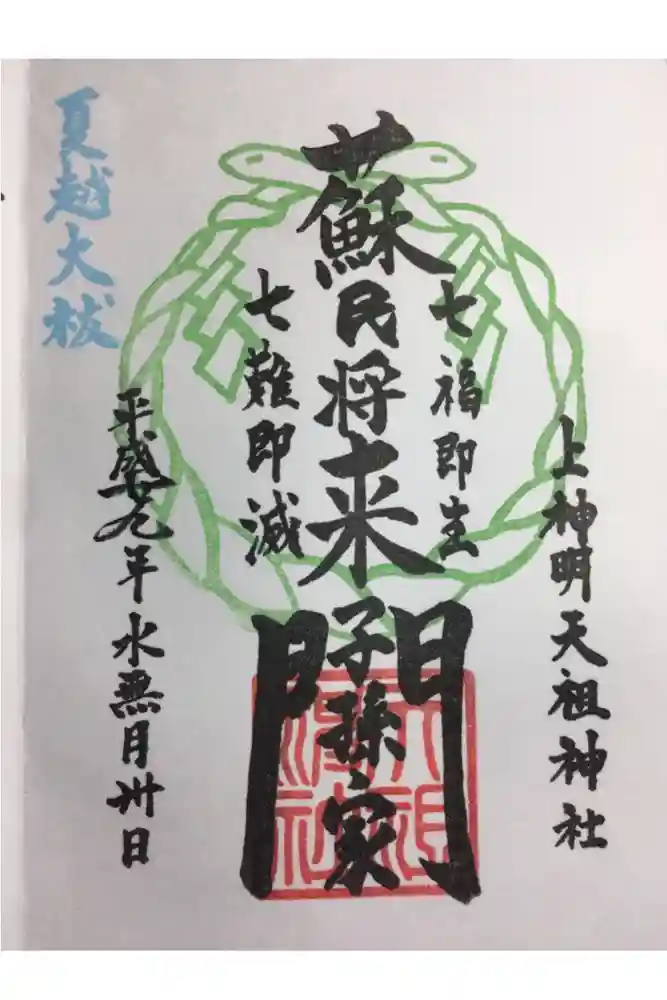 上神明天祖神社
七福即生
蘇民将来子孫家門
七難即滅
夏越大祓
平成廿九年水無月卅日
天祖神社